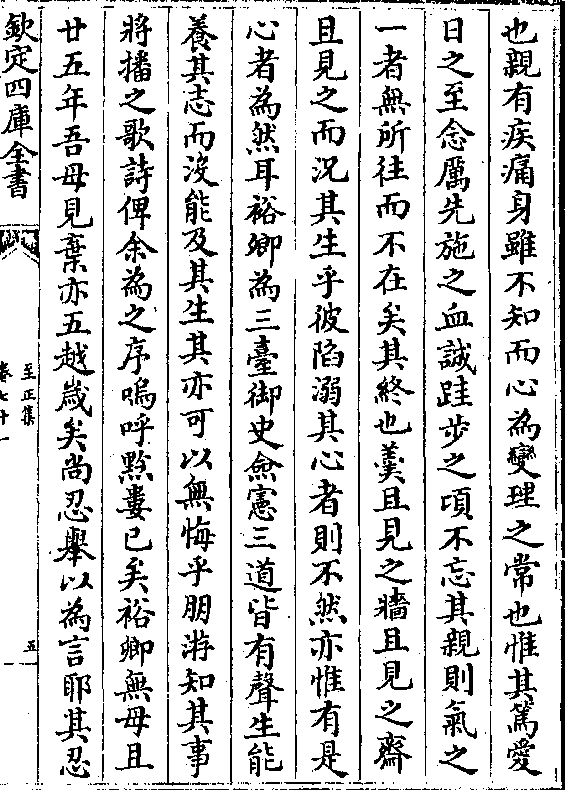 也親有疾痛身雖不知而心為變理之常也惟其篤愛
日之至念厲先施之血誠跬步之頃不忘其親則氣之
一者無所往而不在矣其終也羹且見之牆且見之齋
且見之而況其生乎彼陷溺其心者則不然亦惟有是
心者為然耳裕卿為三臺御史僉憲三道皆有聲生能
養其志而没能及其生其亦可以無悔乎朋游知其事
將播之歌詩俾余為之序嗚呼黔婁已矣裕卿無母且
廿五年吾母見棄亦五越歲矣尚忍舉以為言耶其忍
欽定四庫全書
至正集
卷七十一
五